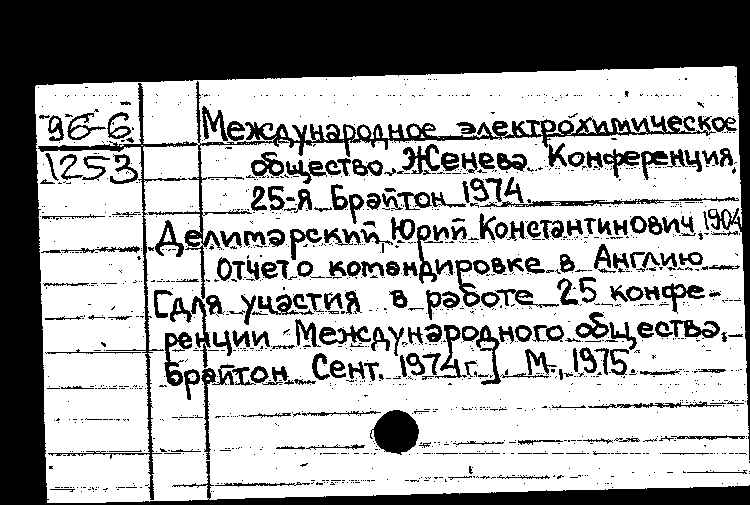 96-6
1253
Международное электрохимическое
общество. Женева Конференция,
25-я Брайтон 1974.
Делимарский, Юрий Константинович, 1904
Отчет о командировке в Англию
[для участия в работе 25 конфе-
ренции Международного общества.
Брайтон Сент. 1974 г.]. М., 1975.